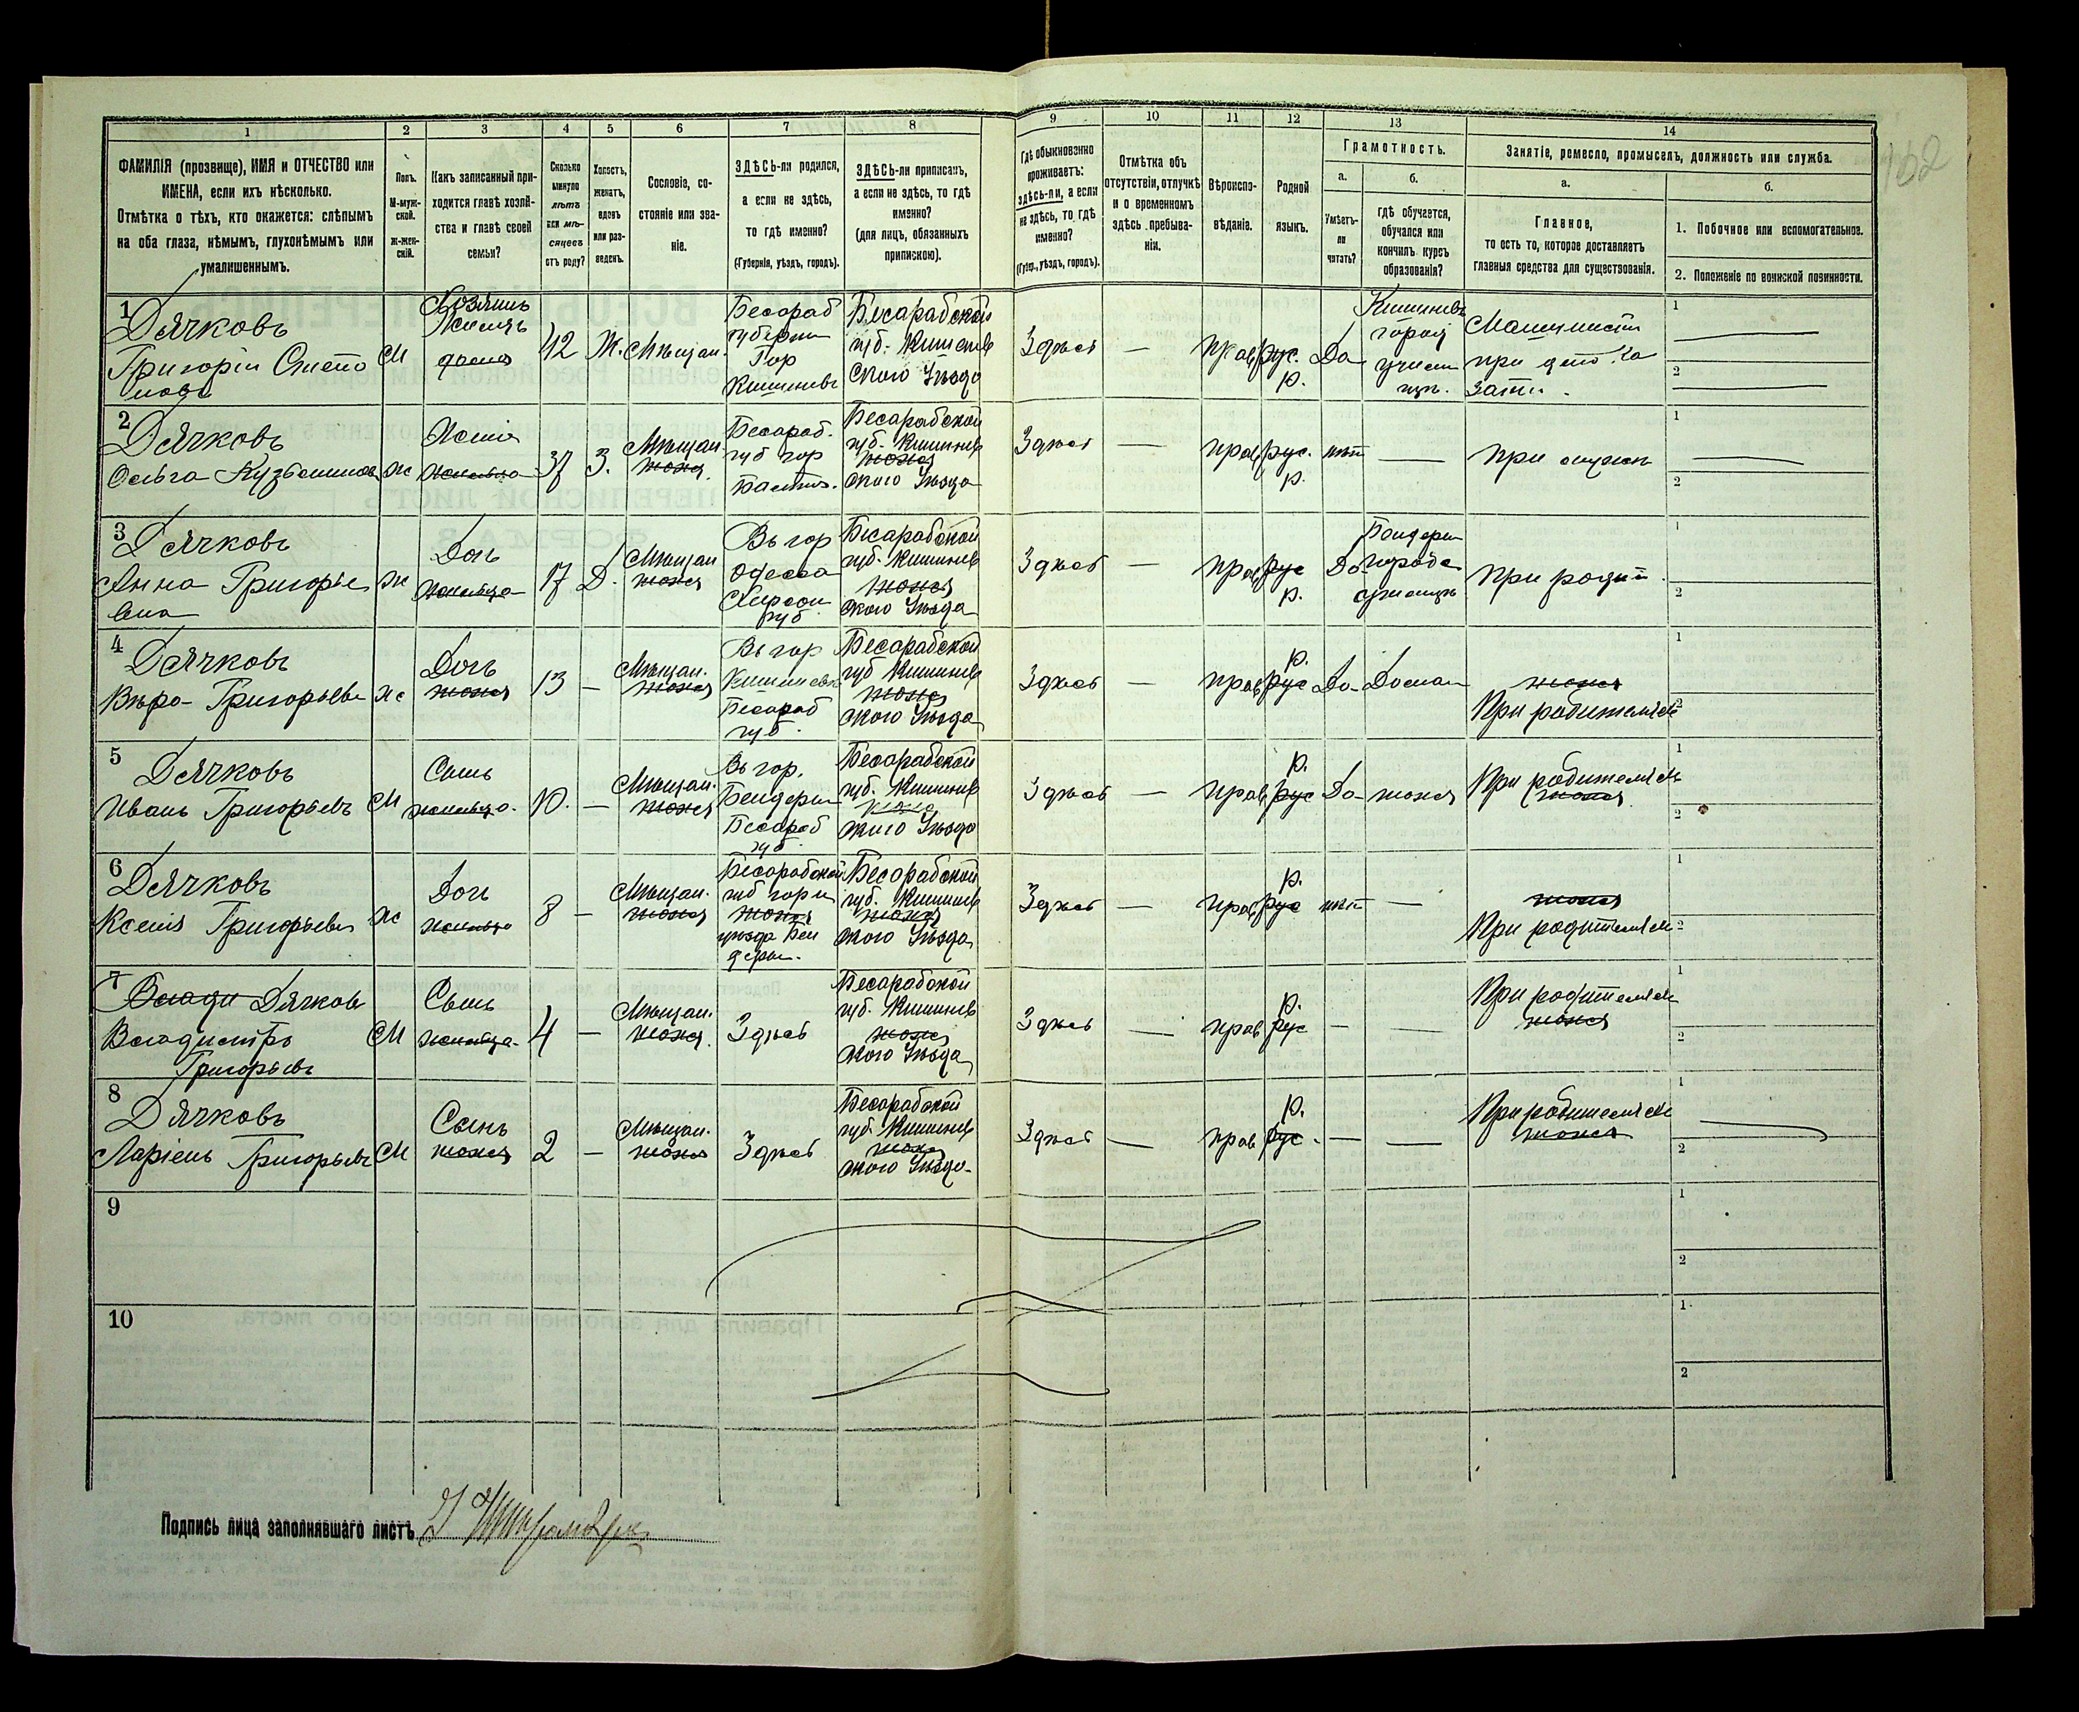 1
2
3
4
5
6
7
8
9
10
11
12
13
14
ФАМИЛІЯ (прозвище), ИМЯ и ОТЧЕСТВО или
ИМЕНА, если ихъ нѣсколько.
Отмѣтка о тѣхъ, кто окажется: слѣпымъ
на оба глаза, нѣмымъ, глухонѣмымъ или
умалишеннымъ.
Полъ.
М-муж-
ской.
Ж-жен-
скій.
Какъ записанный при-
ходится главѣ хозяй-
ства и главѣ своей
семьи?
Сколько
минуло
лѣтъ
или мѣ-
сяцевъ
отъ роду?
Холостъ,
женатъ,
вдовъ
или раз-
веденъ.
Сословіе, со-
стояніе или зва-
ніе.
ЗДѢСЬ-ли родился,
а если не здѣсь,
то гдѣ именно?
(Губернія, уѣздъ, городъ).
ЗДѢСЬ-ли приписанъ,
а если не здѣсь, то гдѣ
именно?
(для лицъ, обязанныхъ
припискою).
Гдѣ обыкновенно
проживаетъ:
здѣсь-ли, а если
не здѣсь, то гдѣ
именно?
(Губер., уѣздъ, городъ).
Отмѣтка объ
отсутствіи, отлучкѣ
и о временномъ
здѣсь пребыва-
ніи.
Вѣроиспо-
вѣданіе.
Родной
языкъ.
Грамотность.
а.
б.
Умѣетъ-
ли
читать?
гдѣ обучается,
обучался или
кончилъ курсъ
образованія?
Занятіе, ремесло, промыселъ, должность или служба.
а.
б.
Главное,
то есть то, которое доставляетъ
главныя средства для существованія.
1. Побочное или вспомогательное.
2. Положеніе по воинской повинности.
162
1
Дячковъ
Григорій Степа
новъ
М
Хозяинъ
42
Ж.
Мѣщан.
Бесараб
губерни
Гор
Кишиневъ
Бесарабской
губ. Кишинев
ского Уѣзда
Здѣсь
—
прав
рус.
р.
Да
Кишиневъ
город
Машинисти
при
1
2
2
Дячковъ
Ольга
ж
Жена
37
З.
Мѣщан.
Бесараб.
губ гор
Бесарабской
губ. Кишинев
ского Уѣзда
Здѣсь
—
прав
рус.
р.
нѣт
—
при
1
2
3
Дячковъ
Анна Григорье
вна
ж
Дочь
17
Д.
Мѣщан
тоже
Въ гор
Одесса
Херсон
губ.
Бесарабской
губ. Кишинев
тоже
ского Уѣзда
Здѣсь
—
прав
рус
р.
Да
Бендеры
города
1
2
4
Дячковъ
Вѣра Григорьева
ж
Дочь
тоже
13
—
Мѣщан.
тоже
Въ гор
Кишиневъ
Бесараб
губ.
Бесарабской
губ Кишинев
тоже
ского Уѣзда
Здѣсь
—
прав
р.
рус
Да
Дома
тоже
При родителях
1
2
5
Дячковъ
Иванъ Григорьевъ
М
Сынъ
10.
—
Мѣщан.
тоже
Въ гор.
Бендеры
Бесараб
губ.
Бесарабской
губ. Кишинев
тоже
ского Уѣзда
Здѣсь
—
прав
р.
рус
Да
тоже
При родителях
тоже
1
2
6
Дячковъ
Ксенія Григорьева
ж
Дочь
8
—
Мѣщан.
тоже
Бесарабской
тоже
уѣзда Бен
деры.
Бесарабской
губ. Кишинев
тоже
ского Уѣзда
Здѣсь
—
прав
р.
рус
нѣт
—
тоже
При родителях
1
2
7
Влади Дячков
Владимѣръ
Григорьевъ
М
Сынъ
4
—
Мѣщан.
тоже
Здѣсь
Бесарабской
губ. Кишинев
тоже
ского Уѣзда
Здѣсь
—
прав
р.
рус
—
—
При родителях
тоже
1
2
8
Дячковъ
Ларіенъ Григорьевъ
М
Сынъ
тоже
2
—
Мѣщан.
тоже
Здѣсь
Бесарабской
губ. Кишинев
тоже
ского Уѣзда
Здѣсь
—
прав
р.
рус.
—
—
При родителях
тоже
1
2
9
1
2
10
1
2
Подпись лица заполнявшаго листъ